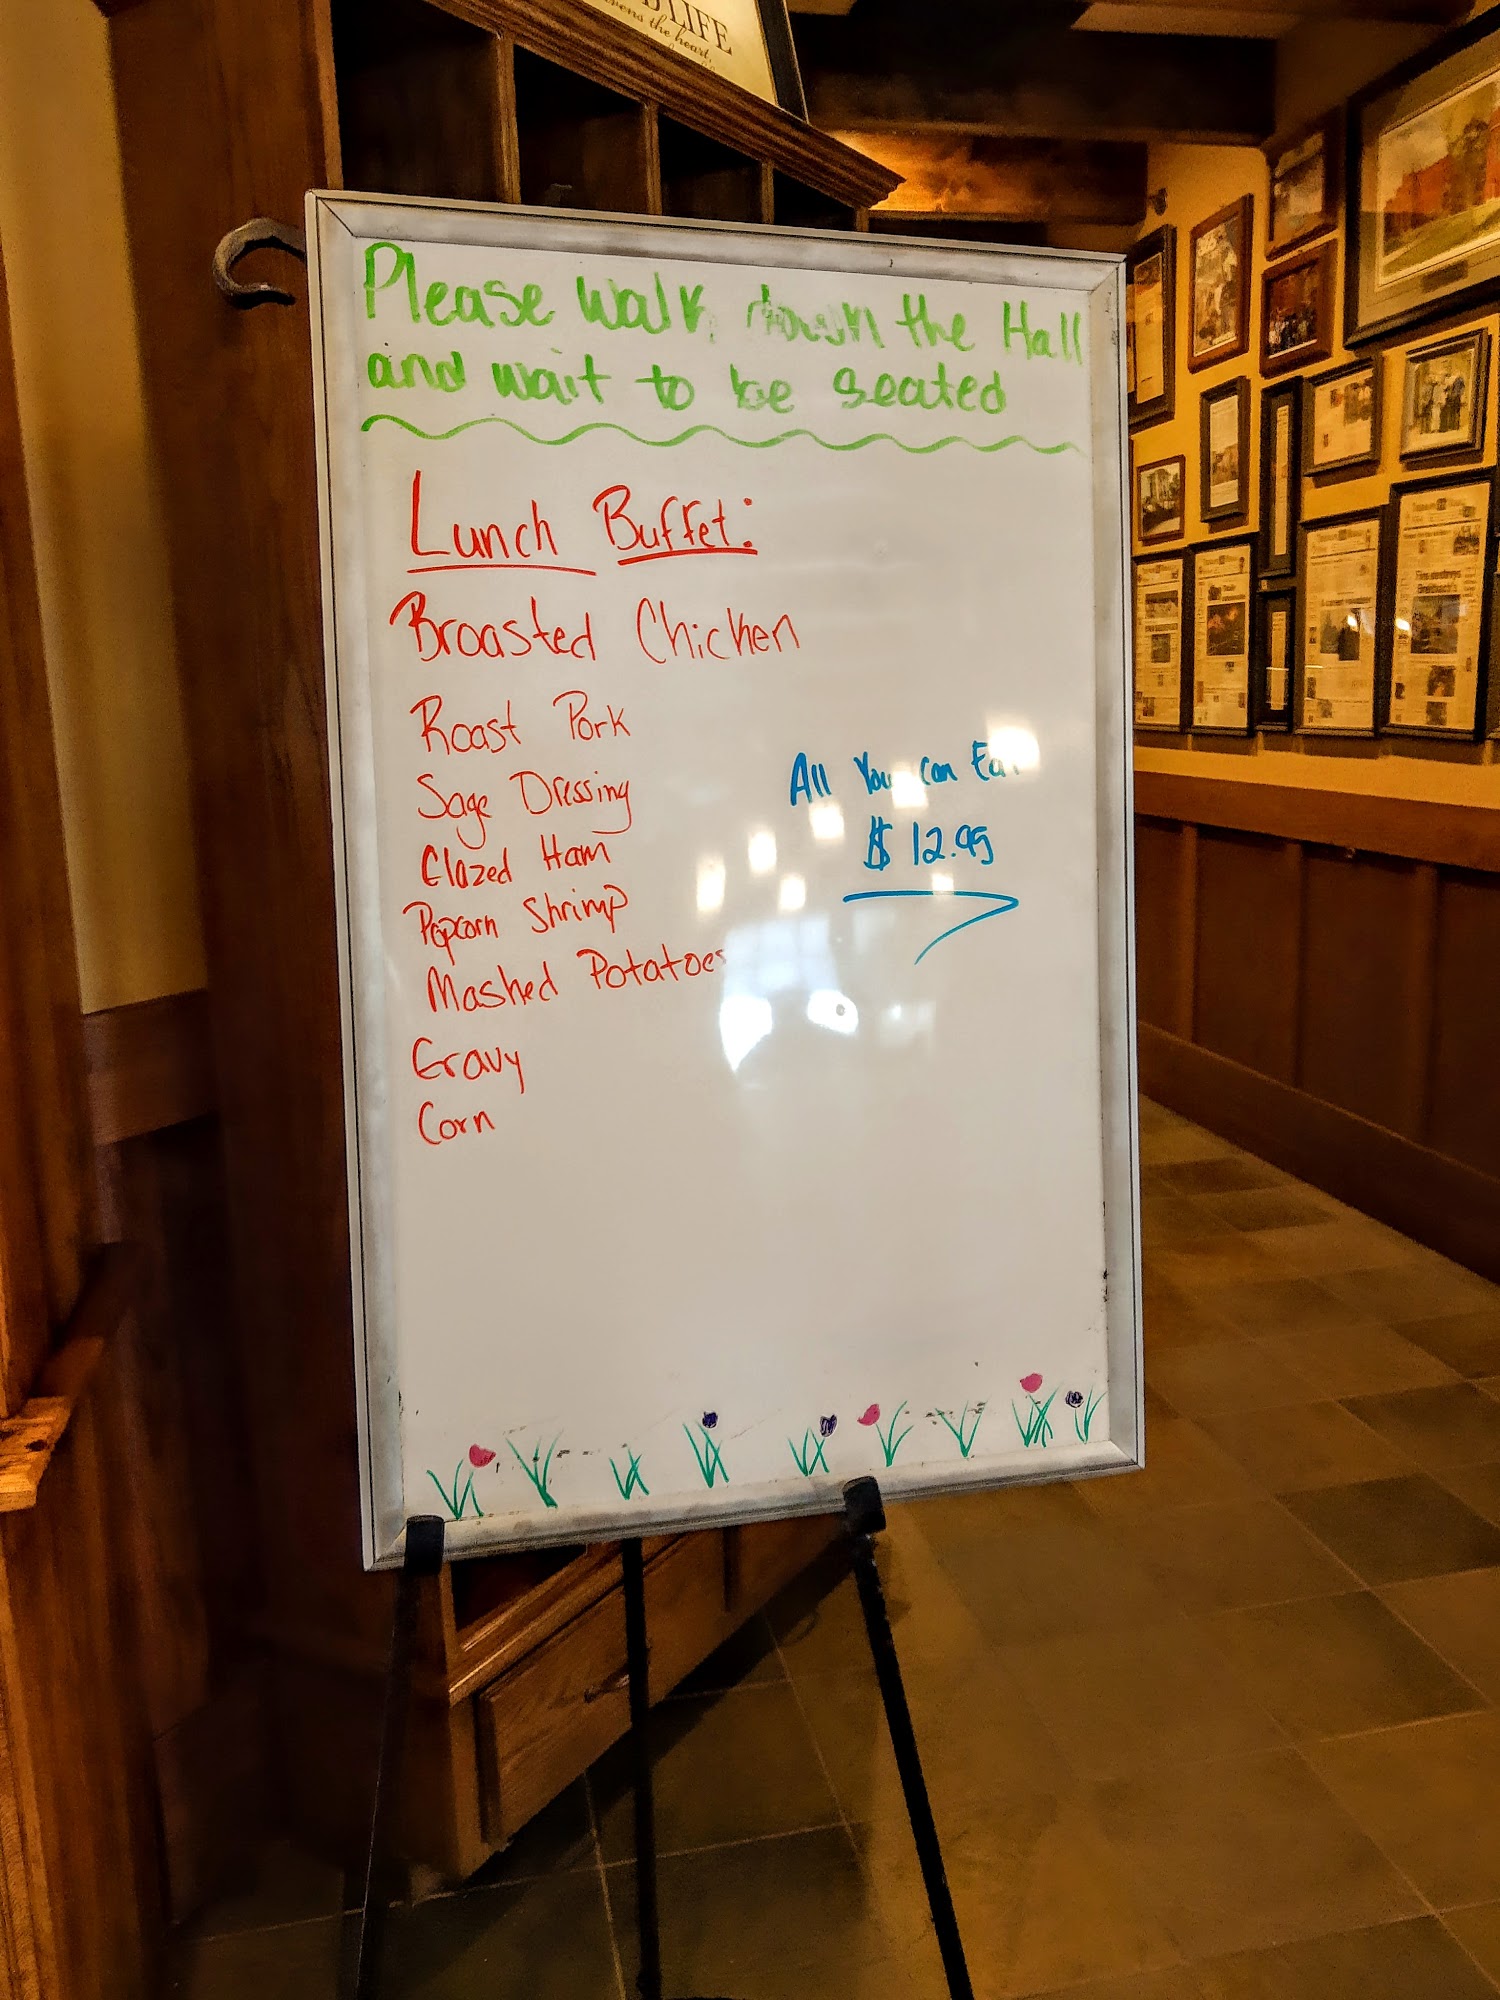 LIFE
the heart,
Please walk down the Hall
and wait to be seated
Lunch Buffet:
Broasted Chicken
Roast Pork
Sage Dressing
Glazed Ham
Popcorn Shrimp
Mashed Potatoes
Gravy
Corn
All You can Eat
$ 12.99